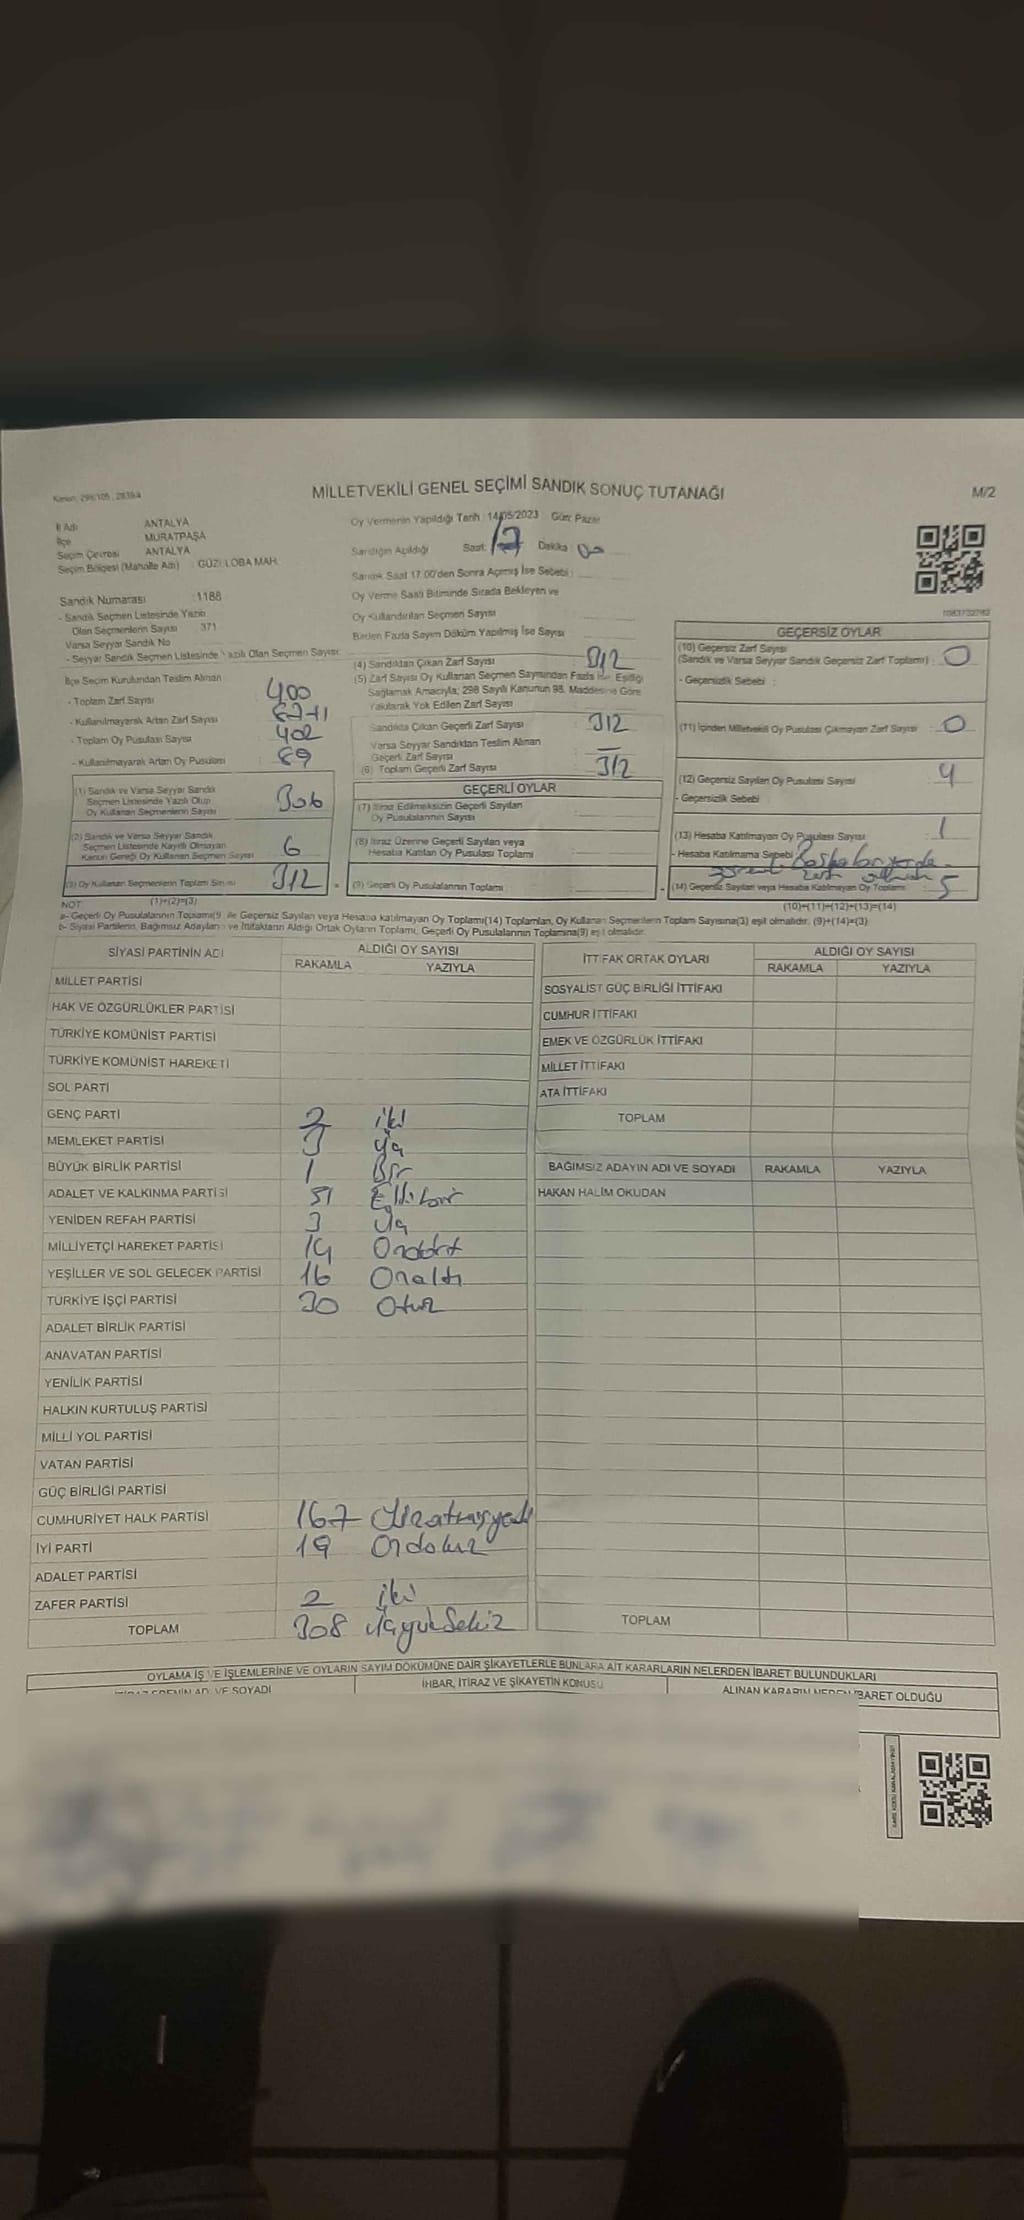 MİLLETVEKİLİ GENEL SEÇİMİ SANDIK SONUÇ TUTANAĞI
M/2
İl Adı ANTALYA
İlçe MURATPAŞA
Seçim Çevresi ANTALYA
Seçim Bölgesi (Mahalle Adı) : GÜZELOBA MAH.
Oy Vermenin Yapıldığı Tarih : 14/05/2023 Gün: Pazar
Sandığın Açıldığı Saat: 17 Dakika : 00
Sandık Saat 17.00'den Sonra Açılmış İse Sebebi :
Oy Verme Saati Bitiminde Sırada Bekleyen ve
Oy Kullandırılan Seçmen Sayısı
Birden Fazla Sayım Döküm Yapılmış İse Sayısı
Sandık Numarası : 1188
- Sandık Seçmen Listesinde Yazılı
Olan Seçmenlerin Sayısı 371
Varsa Seyyar Sandık No
- Seyyar Sandık Seçmen Listesinde Yazılı Olan Seçmen Sayısı:
İlçe Seçim Kurulundan Teslim Alınan
- Toplam Zarf Sayısı 400
- Kullanılmayarak Artan Zarf Sayısı
- Toplam Oy Pusulası Sayısı 402
- Kullanılmayarak Artan Oy Pusulası 89
(1) Sandık ve Varsa Seyyar Sandık
Seçmen Listesinde Yazılı Olup
Oy Kullanan Seçmenlerin Sayısı 306
(2) Sandık ve Varsa Seyyar Sandık
Seçmen Listesinde Kayıtlı Olmayan
Kanun Gereği Oy Kullanan Seçmen Sayısı 6
(3) Oy Kullanan Seçmenlerin Toplam Sayısı 312
(1)+(2)=(3)
(4) Sandıktan Çıkan Zarf Sayısı 312
(5) Zarf Sayısı Oy Kullanan Seçmen Sayısından Fazla İse, Eşitliği
Sağlamak Amacıyla; 298 Sayılı Kanunun 98. Maddesine Göre
Yakılarak Yok Edilen Zarf Sayısı
Sandıkta Çıkan Geçerli Zarf Sayısı 312
Varsa Seyyar Sandıktan Teslim Alınan
Geçerli Zarf Sayısı –
(6) Toplam Geçerli Zarf Sayısı 312
GEÇERLİ OYLAR
(7) İtiraz Edilmeksizin Geçerli Sayılan
Oy Pusulalarının Sayısı
(8) İtiraz Üzerine Geçerli Sayılan veya
Hesaba Katılan Oy Pusulası Toplamı
(9) Geçerli Oy Pusulalarının Toplamı
GEÇERSİZ OYLAR
(10) Geçersiz Zarf Sayısı
(Sandık ve Varsa Seyyar Sandık Geçersiz Zarf Toplamı) : 0
- Geçersizlik Sebebi :
(11) İçinden Milletvekili Oy Pusulası Çıkmayan Zarf Sayısı : 0
(12) Geçersiz Sayılan Oy Pusulası Sayısı 4
- Geçersizlik Sebebi :
(13) Hesaba Katılmayan Oy Pusulası Sayısı : 1
- Hesaba Katılmama Sebebi
(14) Geçersiz Sayılan veya Hesaba Katılmayan Oy Toplamı 5
(10)+(11)+(12)+(13)=(14)
NOT
a- Geçerli Oy Pusulalarının Toplamı(9) ile Geçersiz Sayılan veya Hesaba katılmayan Oy Toplamı(14) Toplamları, Oy Kullanan Seçmenlerin Toplam Sayısına(3) eşit olmalıdır. (9)+(14)=(3)
b- Siyasi Partilerin, Bağımsız Adayların ve İttifakların Aldığı Ortak Oyların Toplamı, Geçerli Oy Pusulalarının Toplamına(9) eşit olmalıdır.
SİYASİ PARTİNİN ADI ALDIĞI OY SAYISI
RAKAMLA YAZIYLA
MİLLET PARTİSİ
HAK VE ÖZGÜRLÜKLER PARTİSİ
TÜRKİYE KOMÜNİST PARTİSİ
TÜRKİYE KOMÜNİST HAREKETİ
SOL PARTİ
GENÇ PARTİ 2 iki
MEMLEKET PARTİSİ 3 üç
BÜYÜK BİRLİK PARTİSİ 1 Bir
ADALET VE KALKINMA PARTİSİ 51 Ellibir
YENİDEN REFAH PARTİSİ 3 üç
MİLLİYETÇİ HAREKET PARTİSİ 14 Ondört
YEŞİLLER VE SOL GELECEK PARTİSİ 16 Onaltı
TÜRKİYE İŞÇİ PARTİSİ 30 Otuz
ADALET BİRLİK PARTİSİ
ANAVATAN PARTİSİ
YENİLİK PARTİSİ
HALKIN KURTULUŞ PARTİSİ
MİLLİ YOL PARTİSİ
VATAN PARTİSİ
GÜÇ BİRLİĞİ PARTİSİ
CUMHURİYET HALK PARTİSİ 167 Yüzatmışyedi
İYİ PARTİ 19 Ondokuz
ADALET PARTİSİ
ZAFER PARTİSİ 2 iki
TOPLAM 308 üçyüzSekiz
İTTİFAK ORTAK OYLARI ALDIĞI OY SAYISI
RAKAMLA YAZIYLA
SOSYALİST GÜÇ BİRLİĞİ İTTİFAKI
CUMHUR İTTİFAKI
EMEK VE ÖZGÜRLÜK İTTİFAKI
MİLLET İTTİFAKI
ATA İTTİFAKI
TOPLAM
BAĞIMSIZ ADAYIN ADI VE SOYADI RAKAMLA YAZIYLA
HAKAN HALİM OKUDAN
TOPLAM
OYLAMA İŞ VE İŞLEMLERİNE VE OYLARIN SAYIM DÖKÜMÜNE DAİR ŞİKAYETLERLE BUNLARA AİT KARARLARIN NELERDEN İBARET BULUNDUKLARI
İTİRAZ EDENİN ADI VE SOYADI İHBAR, İTİRAZ VE ŞİKAYETİN KONUSU ALINAN KARARIN NEDEN İBARET OLDUĞU